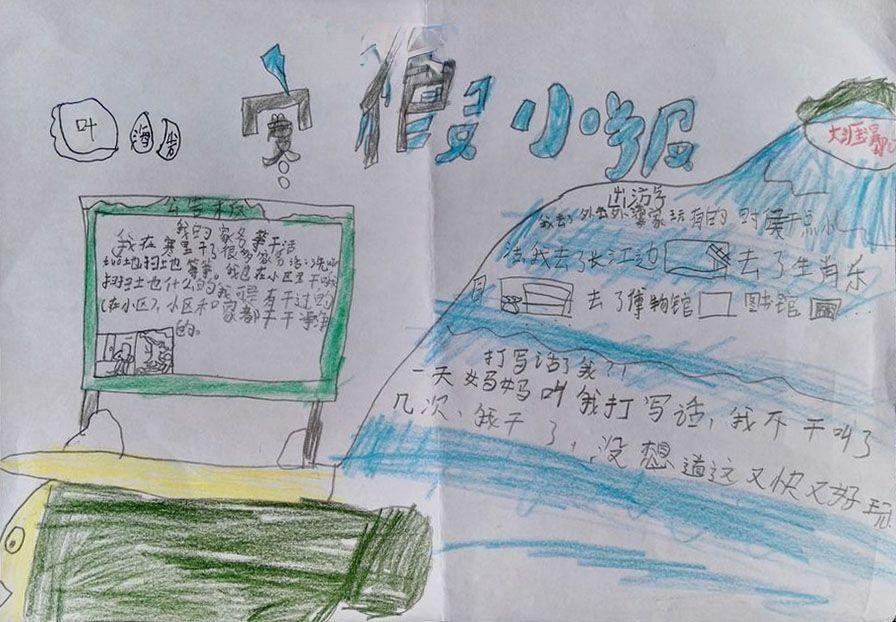 叶
寒假小学报
公告木板
我的家务等干活
我在寒里干了很多家务活:洗
地扫土也等等。我也在小区里干
扫扫土也什么的
(在小区), 小区和家都干
的。
出访号
我去了外去外婆家玩有的时候干点小
活,我去了长江边 去了生肖乐
园 去了博物馆 图书馆
打写话了我?!
一天妈妈叫我打写话,我不干叫了
几次,我干了,没想道这又快又好玩